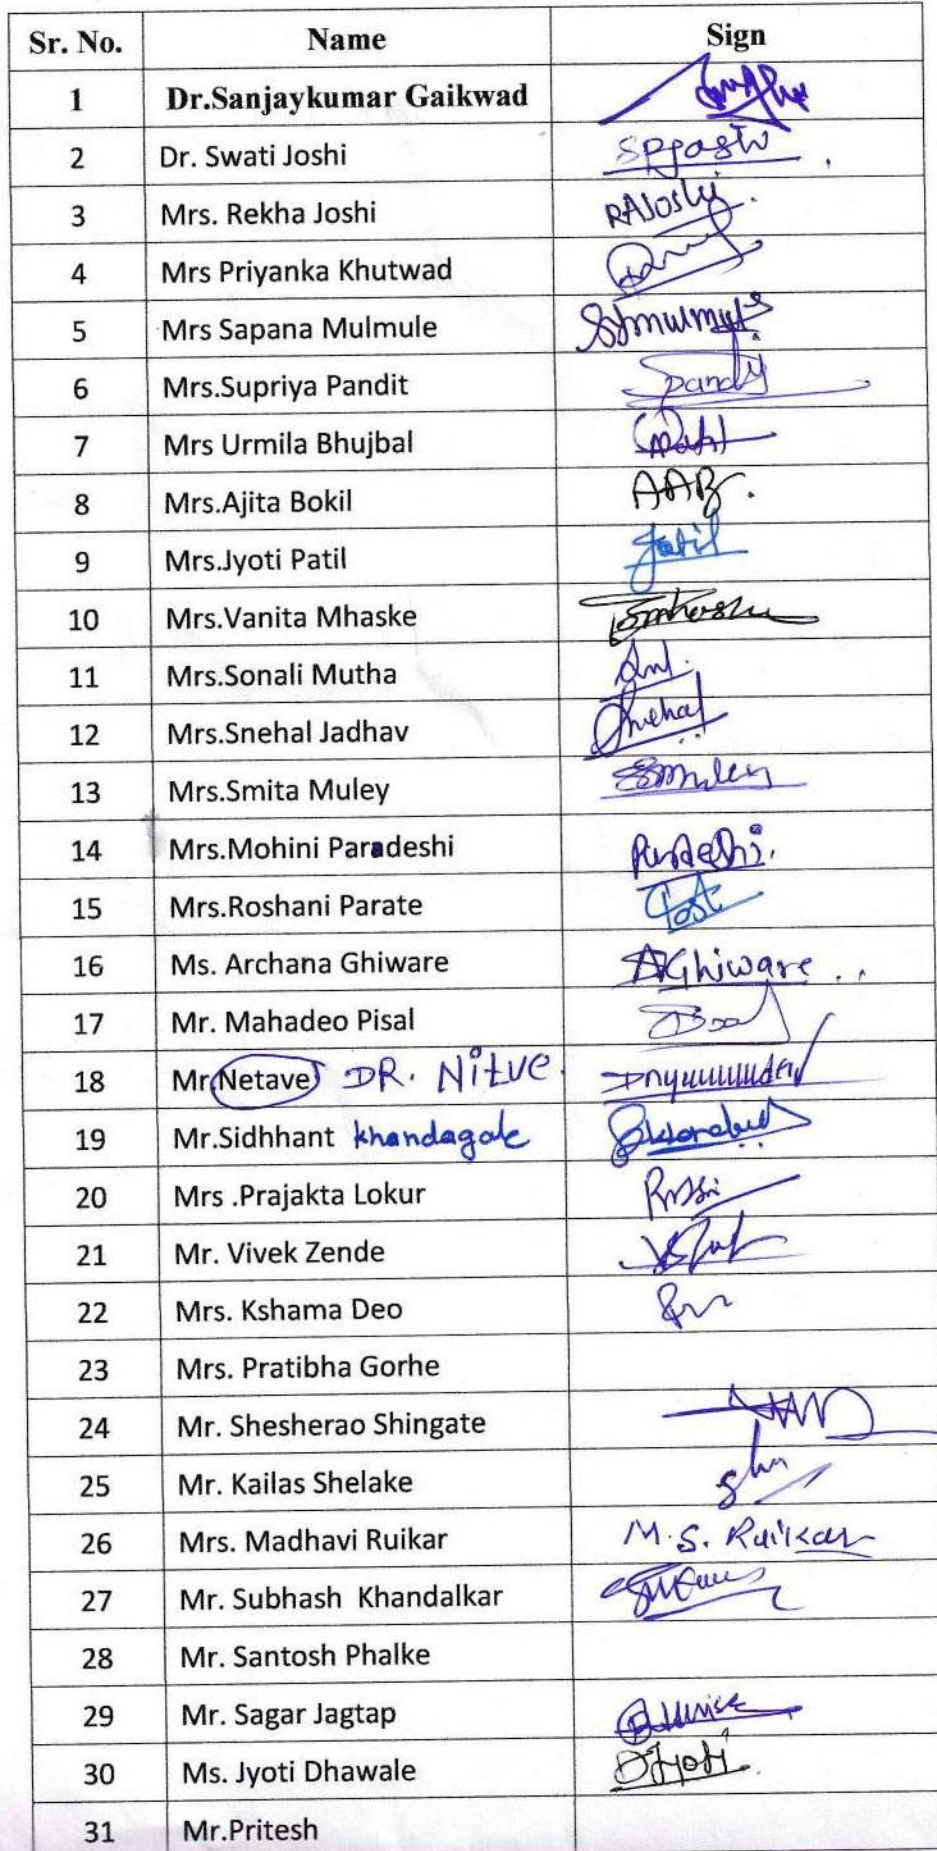 Sr. No. Name Sign
1 Dr.Sanjaykumar Gaikwad
2 Dr. Swati Joshi
3 Mrs. Rekha Joshi RAJoshi
4 Mrs Priyanka Khutwad
5 Mrs Sapana Mulmule
6 Mrs.Supriya Pandit
7 Mrs Urmila Bhujbal
8 Mrs.Ajita Bokil AAB.
9 Mrs.Jyoti Patil
10 Mrs.Vanita Mhaske
11 Mrs.Sonali Mutha
12 Mrs.Snehal Jadhav Snehal
13 Mrs.Smita Muley
14 Mrs.Mohini Paradeshi
15 Mrs.Roshani Parate
16 Ms. Archana Ghiware AGhiware
17 Mr. Mahadeo Pisal
18 Mr.Netave DR. Nitve.
19 Mr.Sidhhant khandagale
20 Mrs .Prajakta Lokur
21 Mr. Vivek Zende
22 Mrs. Kshama Deo
23 Mrs. Pratibha Gorhe
24 Mr. Shesherao Shingate
25 Mr. Kailas Shelake
26 Mrs. Madhavi Ruikar M.S. Ruikar
27 Mr. Subhash Khandalkar
28 Mr. Santosh Phalke
29 Mr. Sagar Jagtap
30 Ms. Jyoti Dhawale DJyoti
31 Mr.Pritesh